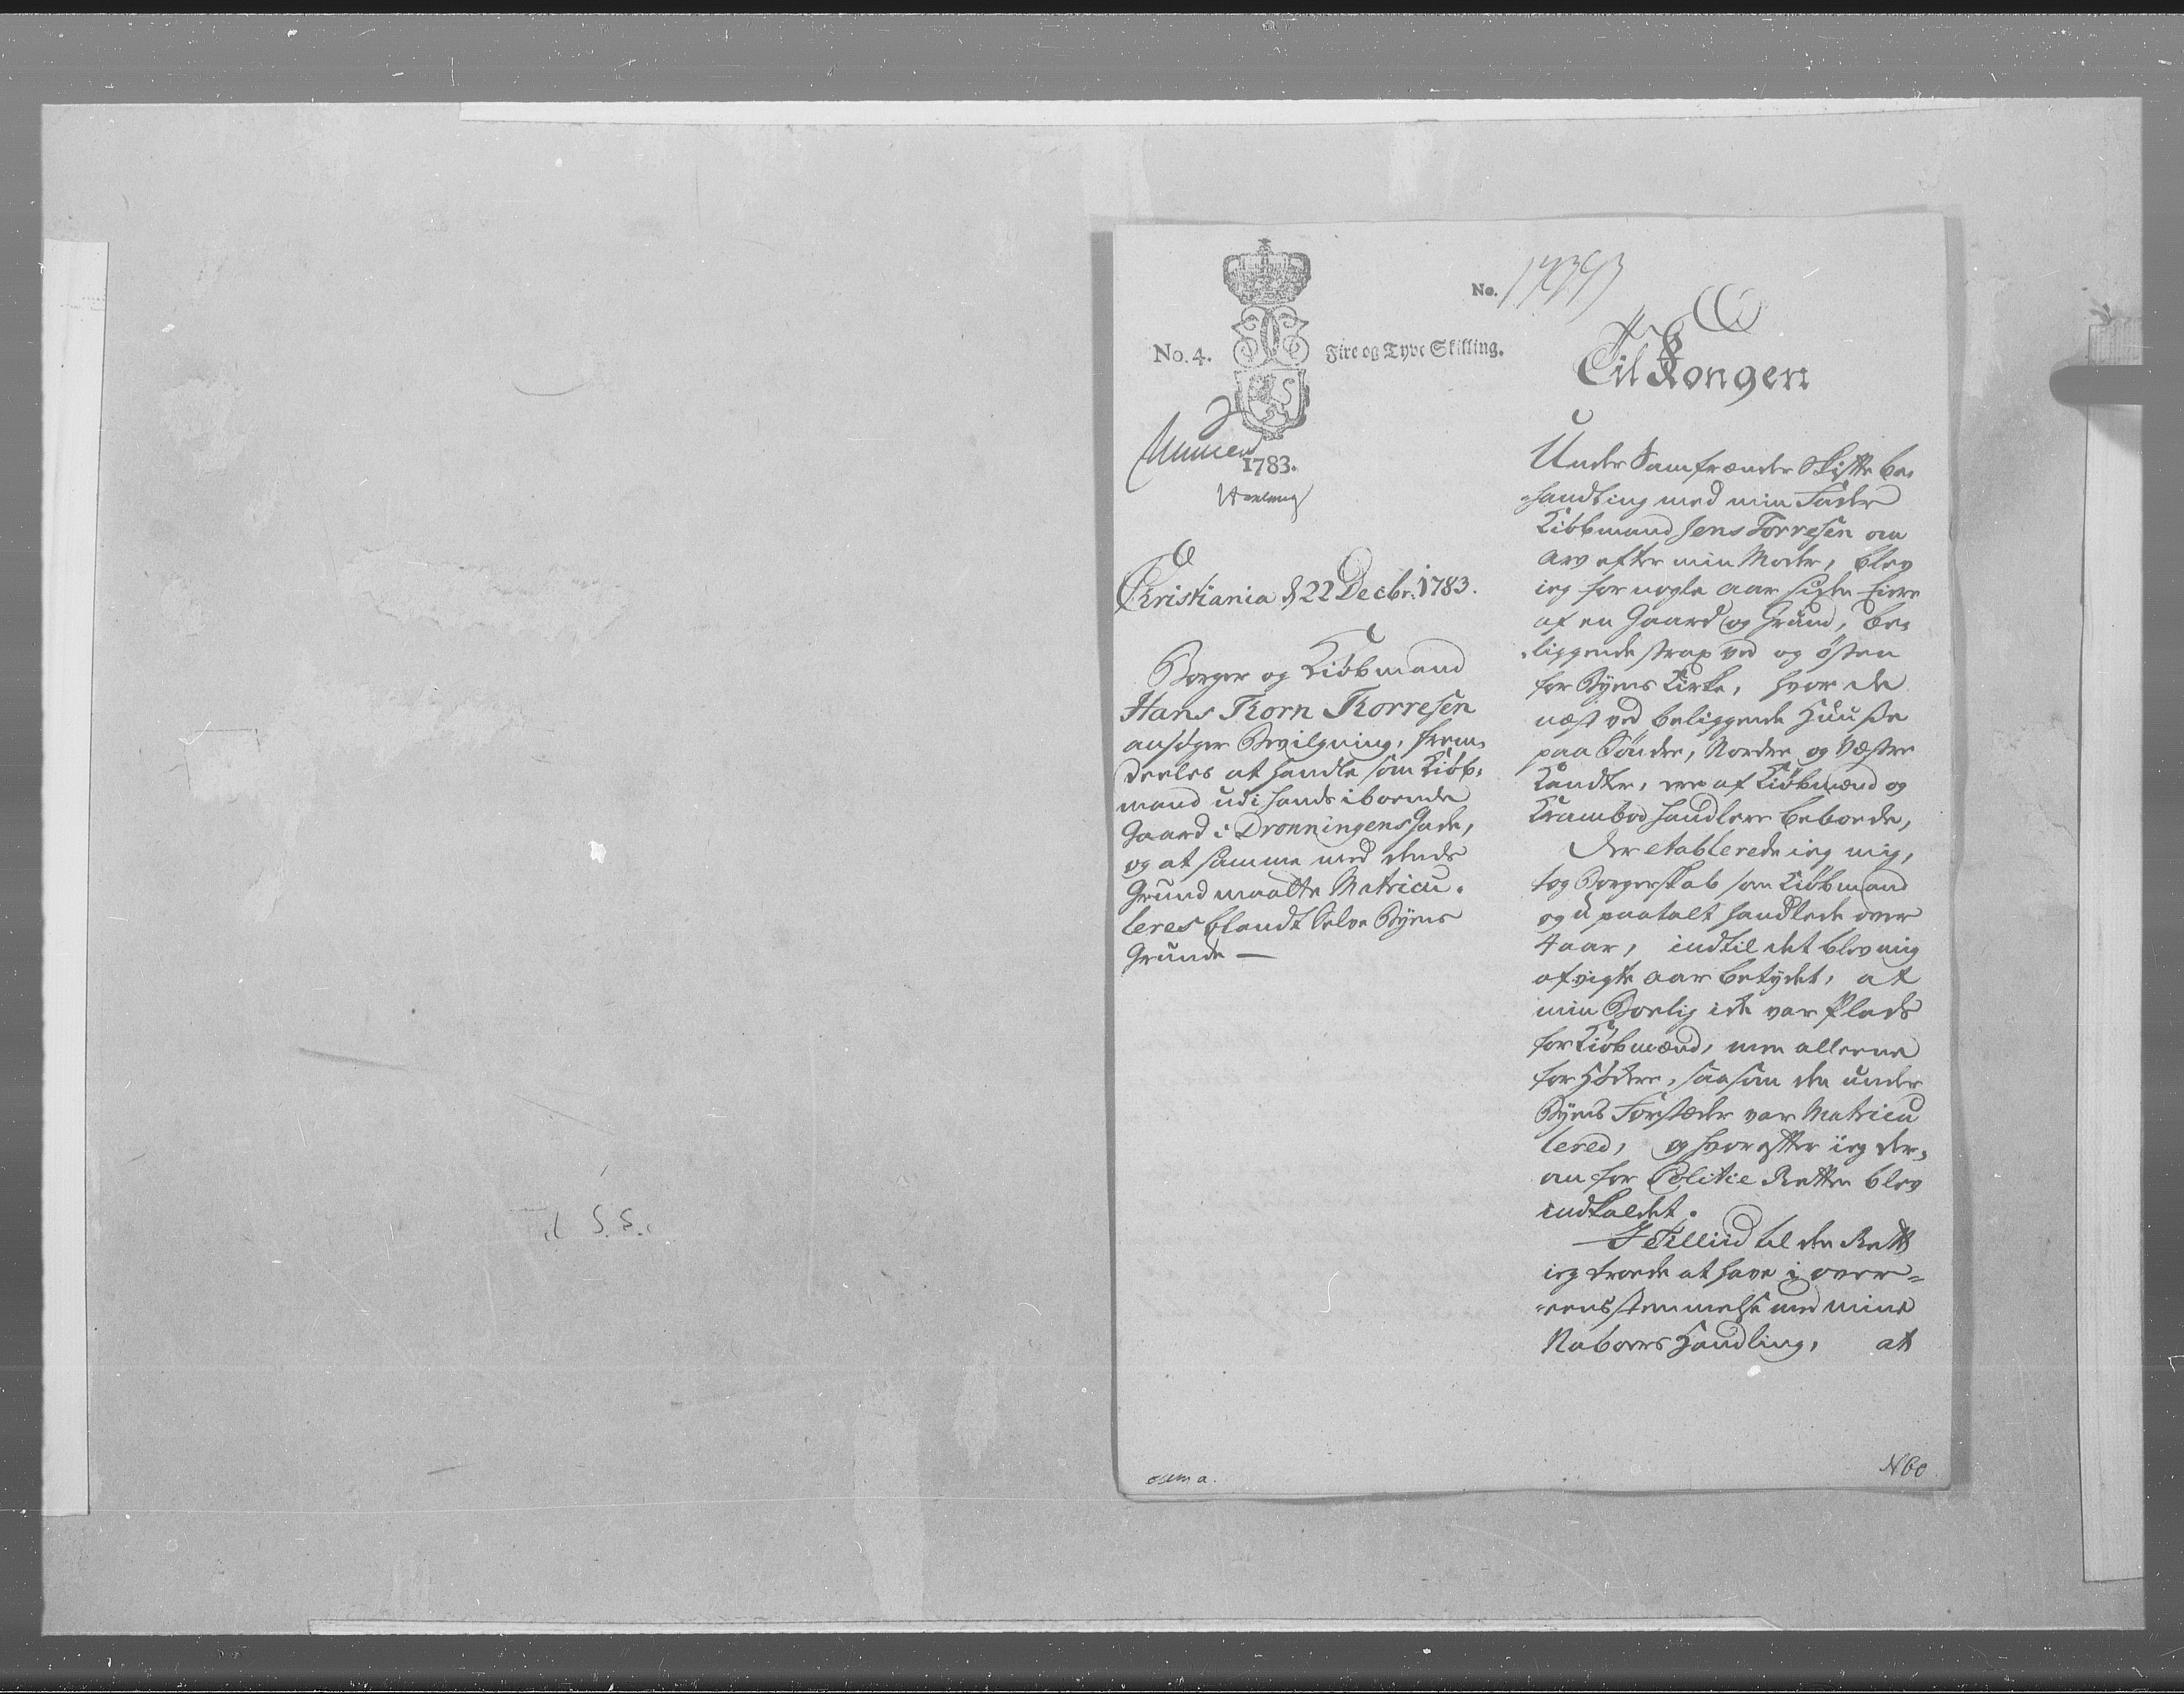 No. 4.
Fire og Tyve Skilling.
1783.
No.
Christiania d 22 Decbr. 1783.
Borger og Kiöbmand
Hans Thorn Thorresen
ansøger Bevilgning, frem-
deeles at handle som Kiöb-
mand udi hands iboende
Gaard i Dronningens Gade,
og at samme med dends
Grund maatte Matricu-
leres blandt Selve Byens
Grunde —
Til Kongen
Under Samfrænder Skifte be-
handling med min Fader
Kiöbmand Jens Torresen om
Arv efter min Moder, blev
ieg for nogle aar siden Eiere
af en Gaard og Grund, be-
liggende strax ved og östen
for Byens Kirke, hvor de
næst ved beliggende Huuse
paa Søndre, Nordre og Vestre
Kandter, ere af Kiöbmænd og
Krambod handlere beboede,
Der etablerede ieg mig,
tog Borgerskab som Kiöbmand
og upaatalt handlede over
4 aar, indtil det blev mig
afvigte aar betydet, at
min Boelig ike var Plads
for Kiöbmænd, men alleene
for Hökere, saasom den under
Byens Forstæder var Matricu
lered, og hvorefter ieg der-
om for Politie Retten blev
indkaldet.
I Tilliid til den Rett
ieg troede at have i over-
eensstemmelse med mine
Naboers Handling, at